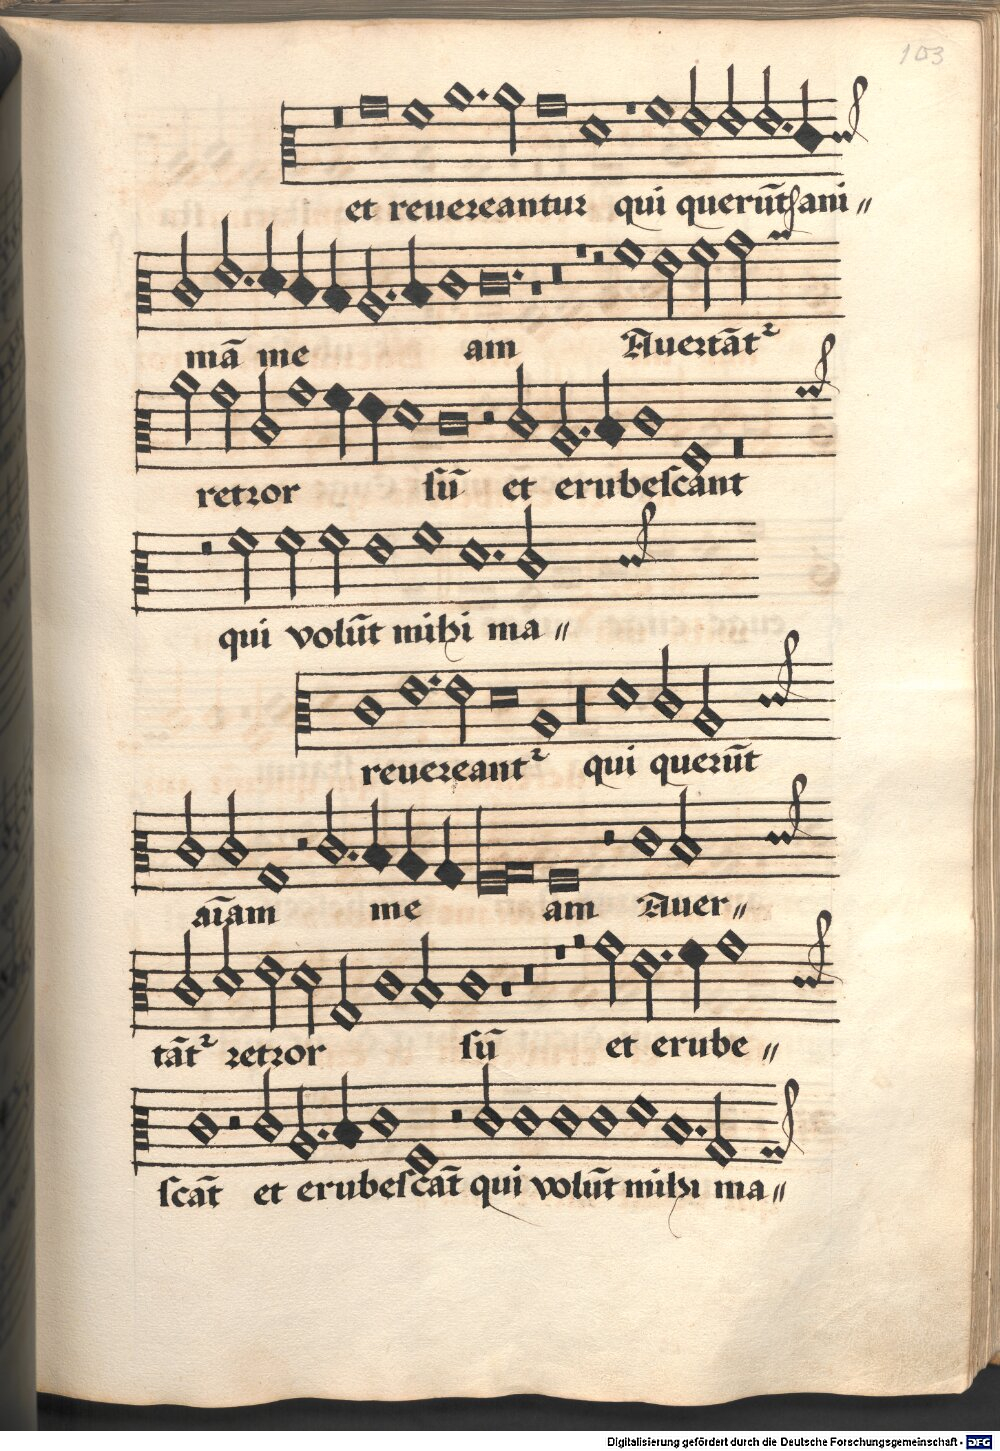 103
et reuereantur qui querūt ani〃
mā me am Auertāt²
retror sū et erubescant
qui volūt mihi ma〃
reuereant² qui querūt
aīam me am Auer〃
tāt² retror sū et erube〃
scāt et erubescāt qui volūt mihi ma〃
Digitalisierung gefördert durch die Deutsche Forschungsgemeinschaft - DFG